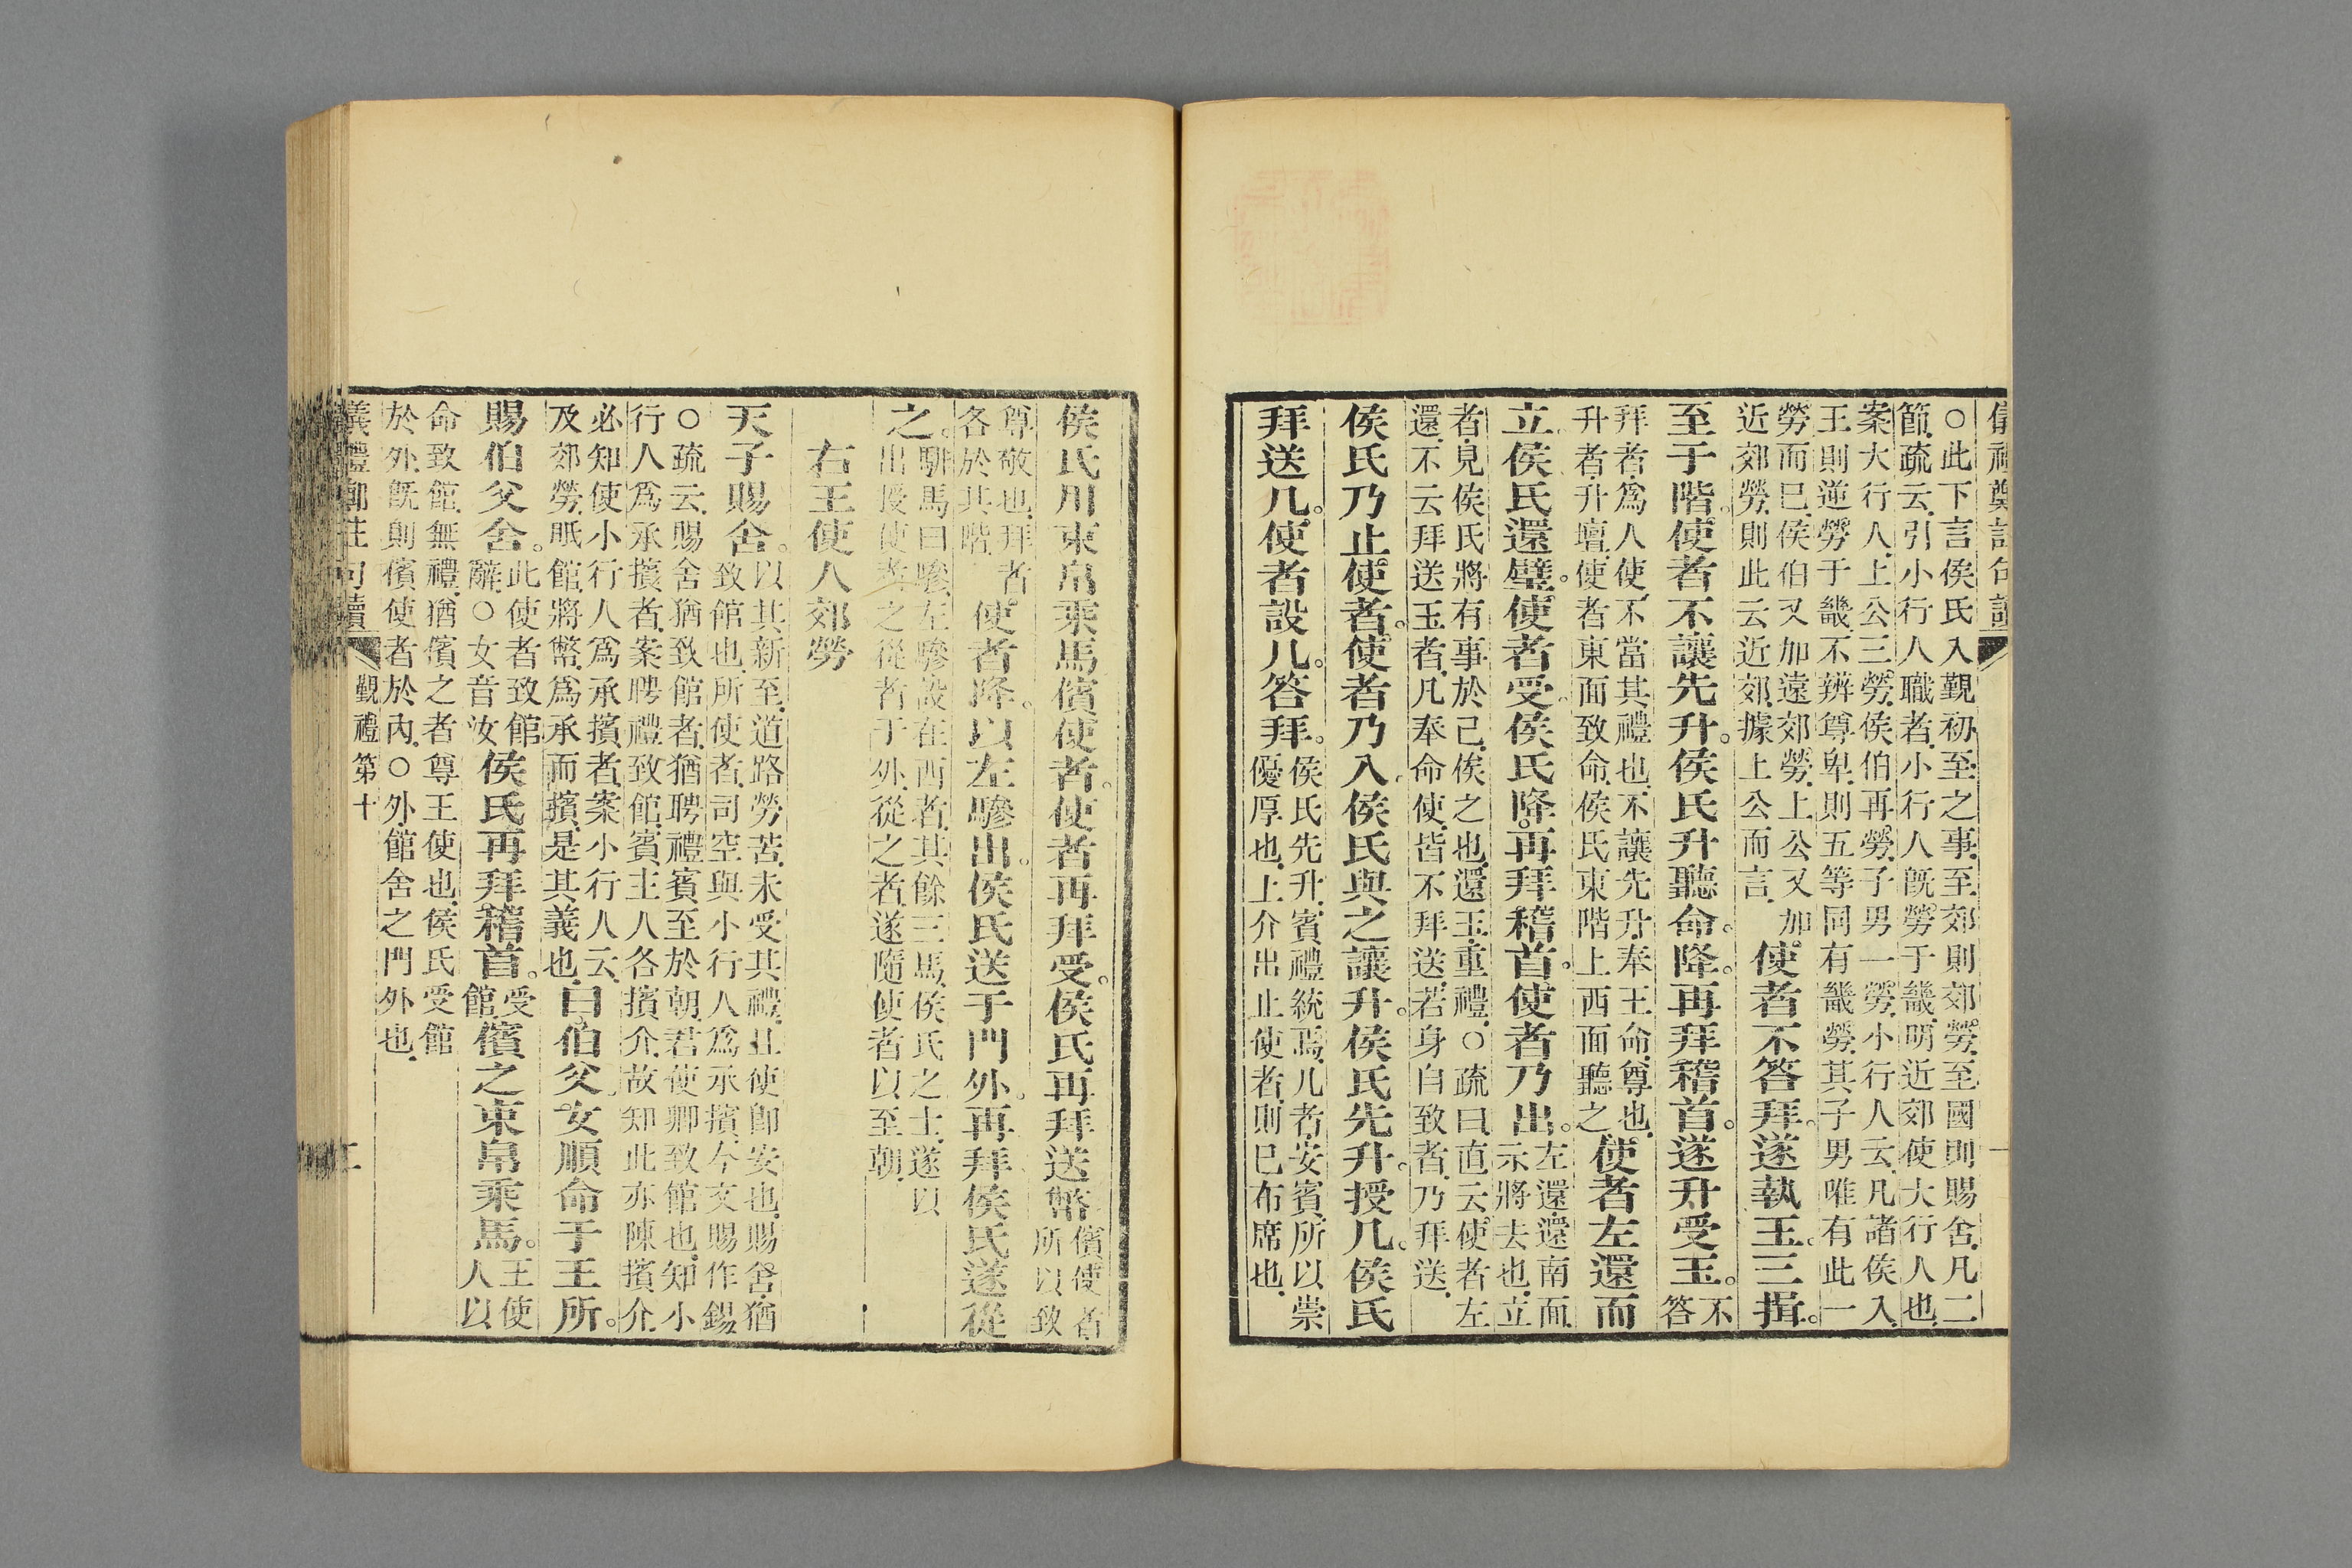 ○此下言侯氏入覲初至之事、至郊則郊勞、至國則賜舍、凡二
節、疏云、引小行人職者、小行人旣勞于畿、明近郊使大行人也、
案大行人、上公三勞、侯伯再勞、子男一勞、小行人云、凡諸侯入
王則逆勞于畿、不辨尊卑、則五等同有畿勞、其子男唯有此一
勞而已、侯伯又加遠郊勞、上公又加
近郊勞、則此云近郊、據上公而言、
使者不答拜。遂執玉。三揖。
至于階。使者不讓先升。侯氏升聽命。降。再拜稽首。遂升受玉。
不
答
拜者、爲人使、不當其禮也、不讓先升、奉王命、尊也、
升者、升壇、使者東面致命、侯氏東階上西面聽之、
使者左還而
立。侯氏還璧。使者受。侯氏降。再拜稽首。使者乃出。
左還、還南面、
示將去也、立
者、見侯氏將有事於己、俟之也、還玉、重禮、○疏曰、直云使者左
還、不云拜送玉者、凡奉命使、皆不拜送、若身自致者、乃拜送、
侯氏乃止使者。使者乃入。侯氏與之讓升。侯氏先升。授几。侯氏
拜送几。使者設几。答拜。
侯氏先升、賓禮統焉、几者、安賓、所以崇
優厚也、上介出止使者、則已布席也、
侯氏用束帛乘馬儐使者。使者再拜受。侯氏再拜送幣。
儐使者、
所以致
尊敬也、拜者、
各於其階、
使者降。以左驂出。侯氏送于門外。再拜。侯氏遂從
之。
騑馬曰驂、左驂、設在西者、其餘三馬、侯氏之士、遂以
出授使者之從者于外、從之者、遂隨使者以至朝、
右王使人郊勞
天子賜舍。
以其新至、道路勞苦、未受其禮、且使卽安也、賜舍、猶
致館也、所使者、司空與、小行人爲承擯、今文賜作錫、
○疏云、賜舍猶致館者、猶聘禮賓至於朝、君使卿致館也、知小
行人爲承擯者、案聘禮致館、賓主人各擯介、故知此亦陳擯介、
必知使小行人爲承擯者、案小行人云、
及郊勞、眡館、將幣、爲承而擯、是其義也、
曰。伯父。女順命于王所。
賜伯父舍。
此使者致館
辭、○女音汝
侯氏再拜稽首。
受
館、
儐之束帛乘馬。
王使
人以
命致館、無禮、猶儐之者、尊王使也、侯氏受館
於外、旣則儐使者於內、○外、館舍之門外也、
儀禮鄭註句讀
覲禮第十